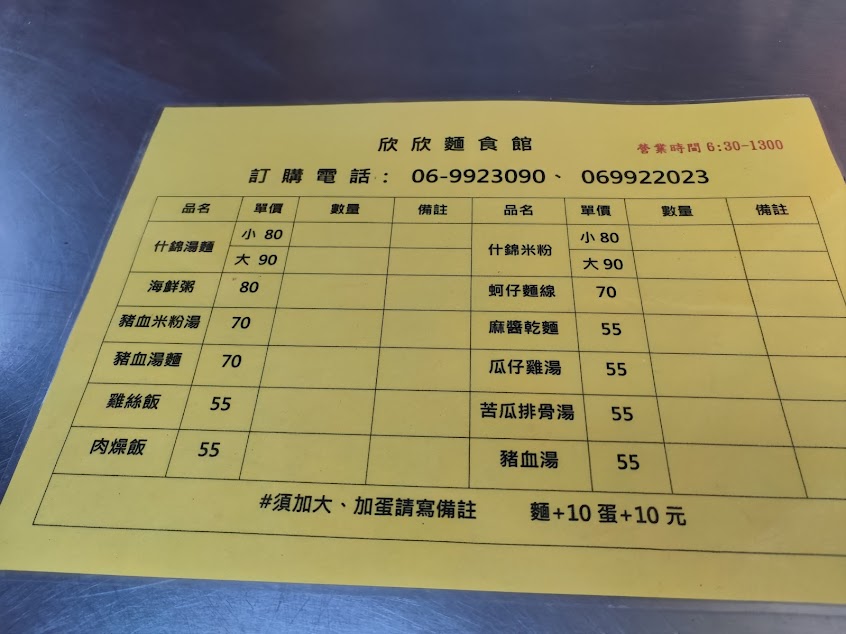 欣欣麵食館
營業時間6:30-1300
訂購電話: 06-9923090、069922023
品名 單價 數量 備註 品名 單價 數量 備註
什錦湯麵 小 80 什錦米粉 小 80
大 90 大 90
海鮮粥 80 蚵仔麵線 70
豬血米粉湯 70 麻醬乾麵 55
豬血湯麵 70 瓜仔雞湯 55
雞絲飯 55 苦瓜排骨湯 55
肉燥飯 55 豬血湯 55
#須加大、加蛋請寫備註 麵+10 蛋+10 元